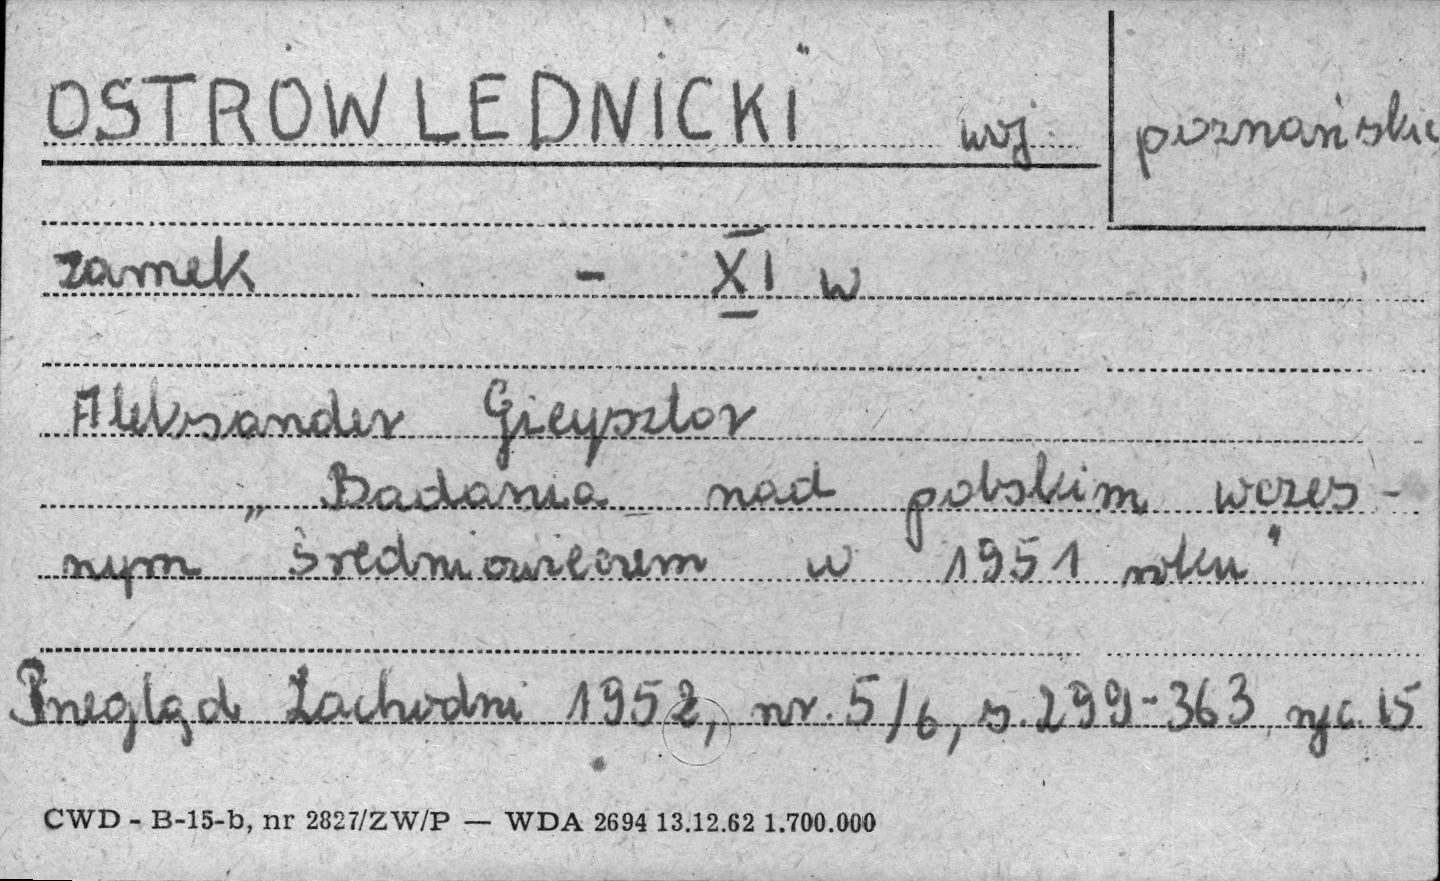 OSTRÓW LEDNICKI woj. poznańskie
zamek - XI w
Aleksander Gieysztor
„Badania nad polskim wczes-
nym średniowieczem w 1951 roku"
Przegląd Zachodni 1952, nr. 5/6, s. 299-363 ryc. 15
CWD - B-15-b, nr 2827/ZW/P — WDA 2694 13.12.62 1.700.000